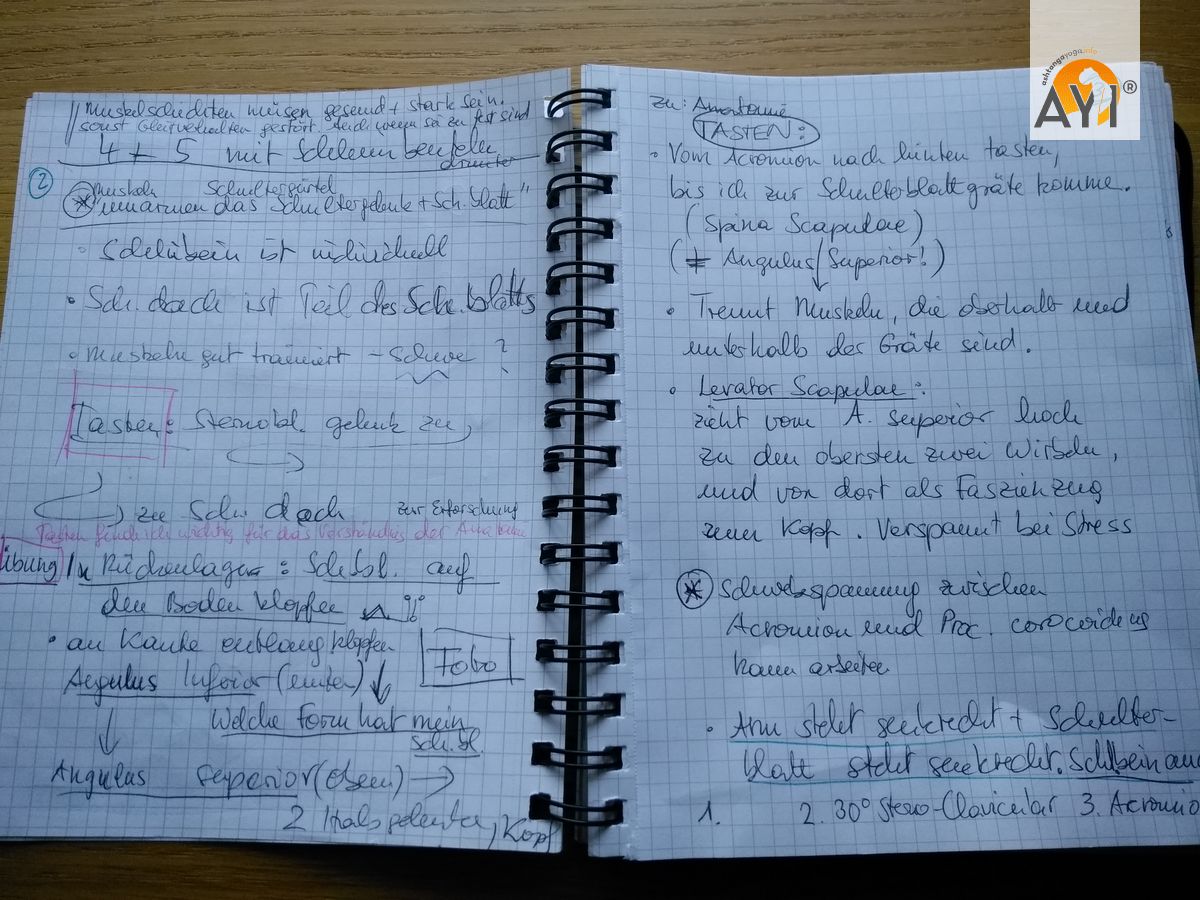 Muskelschichten müssen gesund + stark sein.
sonst Gleitverhalten gestört. Auch wenn sie zu fest sind
4 + 5 mit Schleimbeuteln
drunter
2
Muskeln Schultergürtel
* umarmen das Schultergelenk + Sch.blatt"
• Schlübein ist individuell
• Sch.dach ist Teil des Sch.blatts
• Muskeln gut trainiert - ?
Tasten: gelenk zu,
zu Sch. dach zur Erforschung
Tasten finde ich wichtig für das Verständnis der Anatomie
Übung / Rückenlage: Sch.bl. auf
den Boden klopfen
• an Kante entlang klopfen
Foto
Angulus Inferior (unten)
Welche Form hat mein
Sch.bl.
Angulus Superior (oben) →
2 Halsgelenke, Kopf
zu: Anatomie
TASTEN:
• Vom Acromion nach hinten tasten,
bis ich zur Schulterblattgräte komme.
(Spina Scapulae)
(≠ Angulus Superior!)
• Trennt Muskeln, die oberhalb und
unterhalb der Gräte sind.
• Levator Scapulae:
zieht vom A. superior hoch
zu den obersten zwei Wirbeln,
und von dort als Faszienzug
zum Kopf. Verspannt bei Stress
* zwischen
Acromion und Proc. coracoideus
kann arbeiten
• Arm steht senkrecht + Schulter-
blatt steht senkrecht. Schlbein au
1. 2. 30° Sterno-Clavicular 3. Acromio
ashtangayoga.info
AYI®